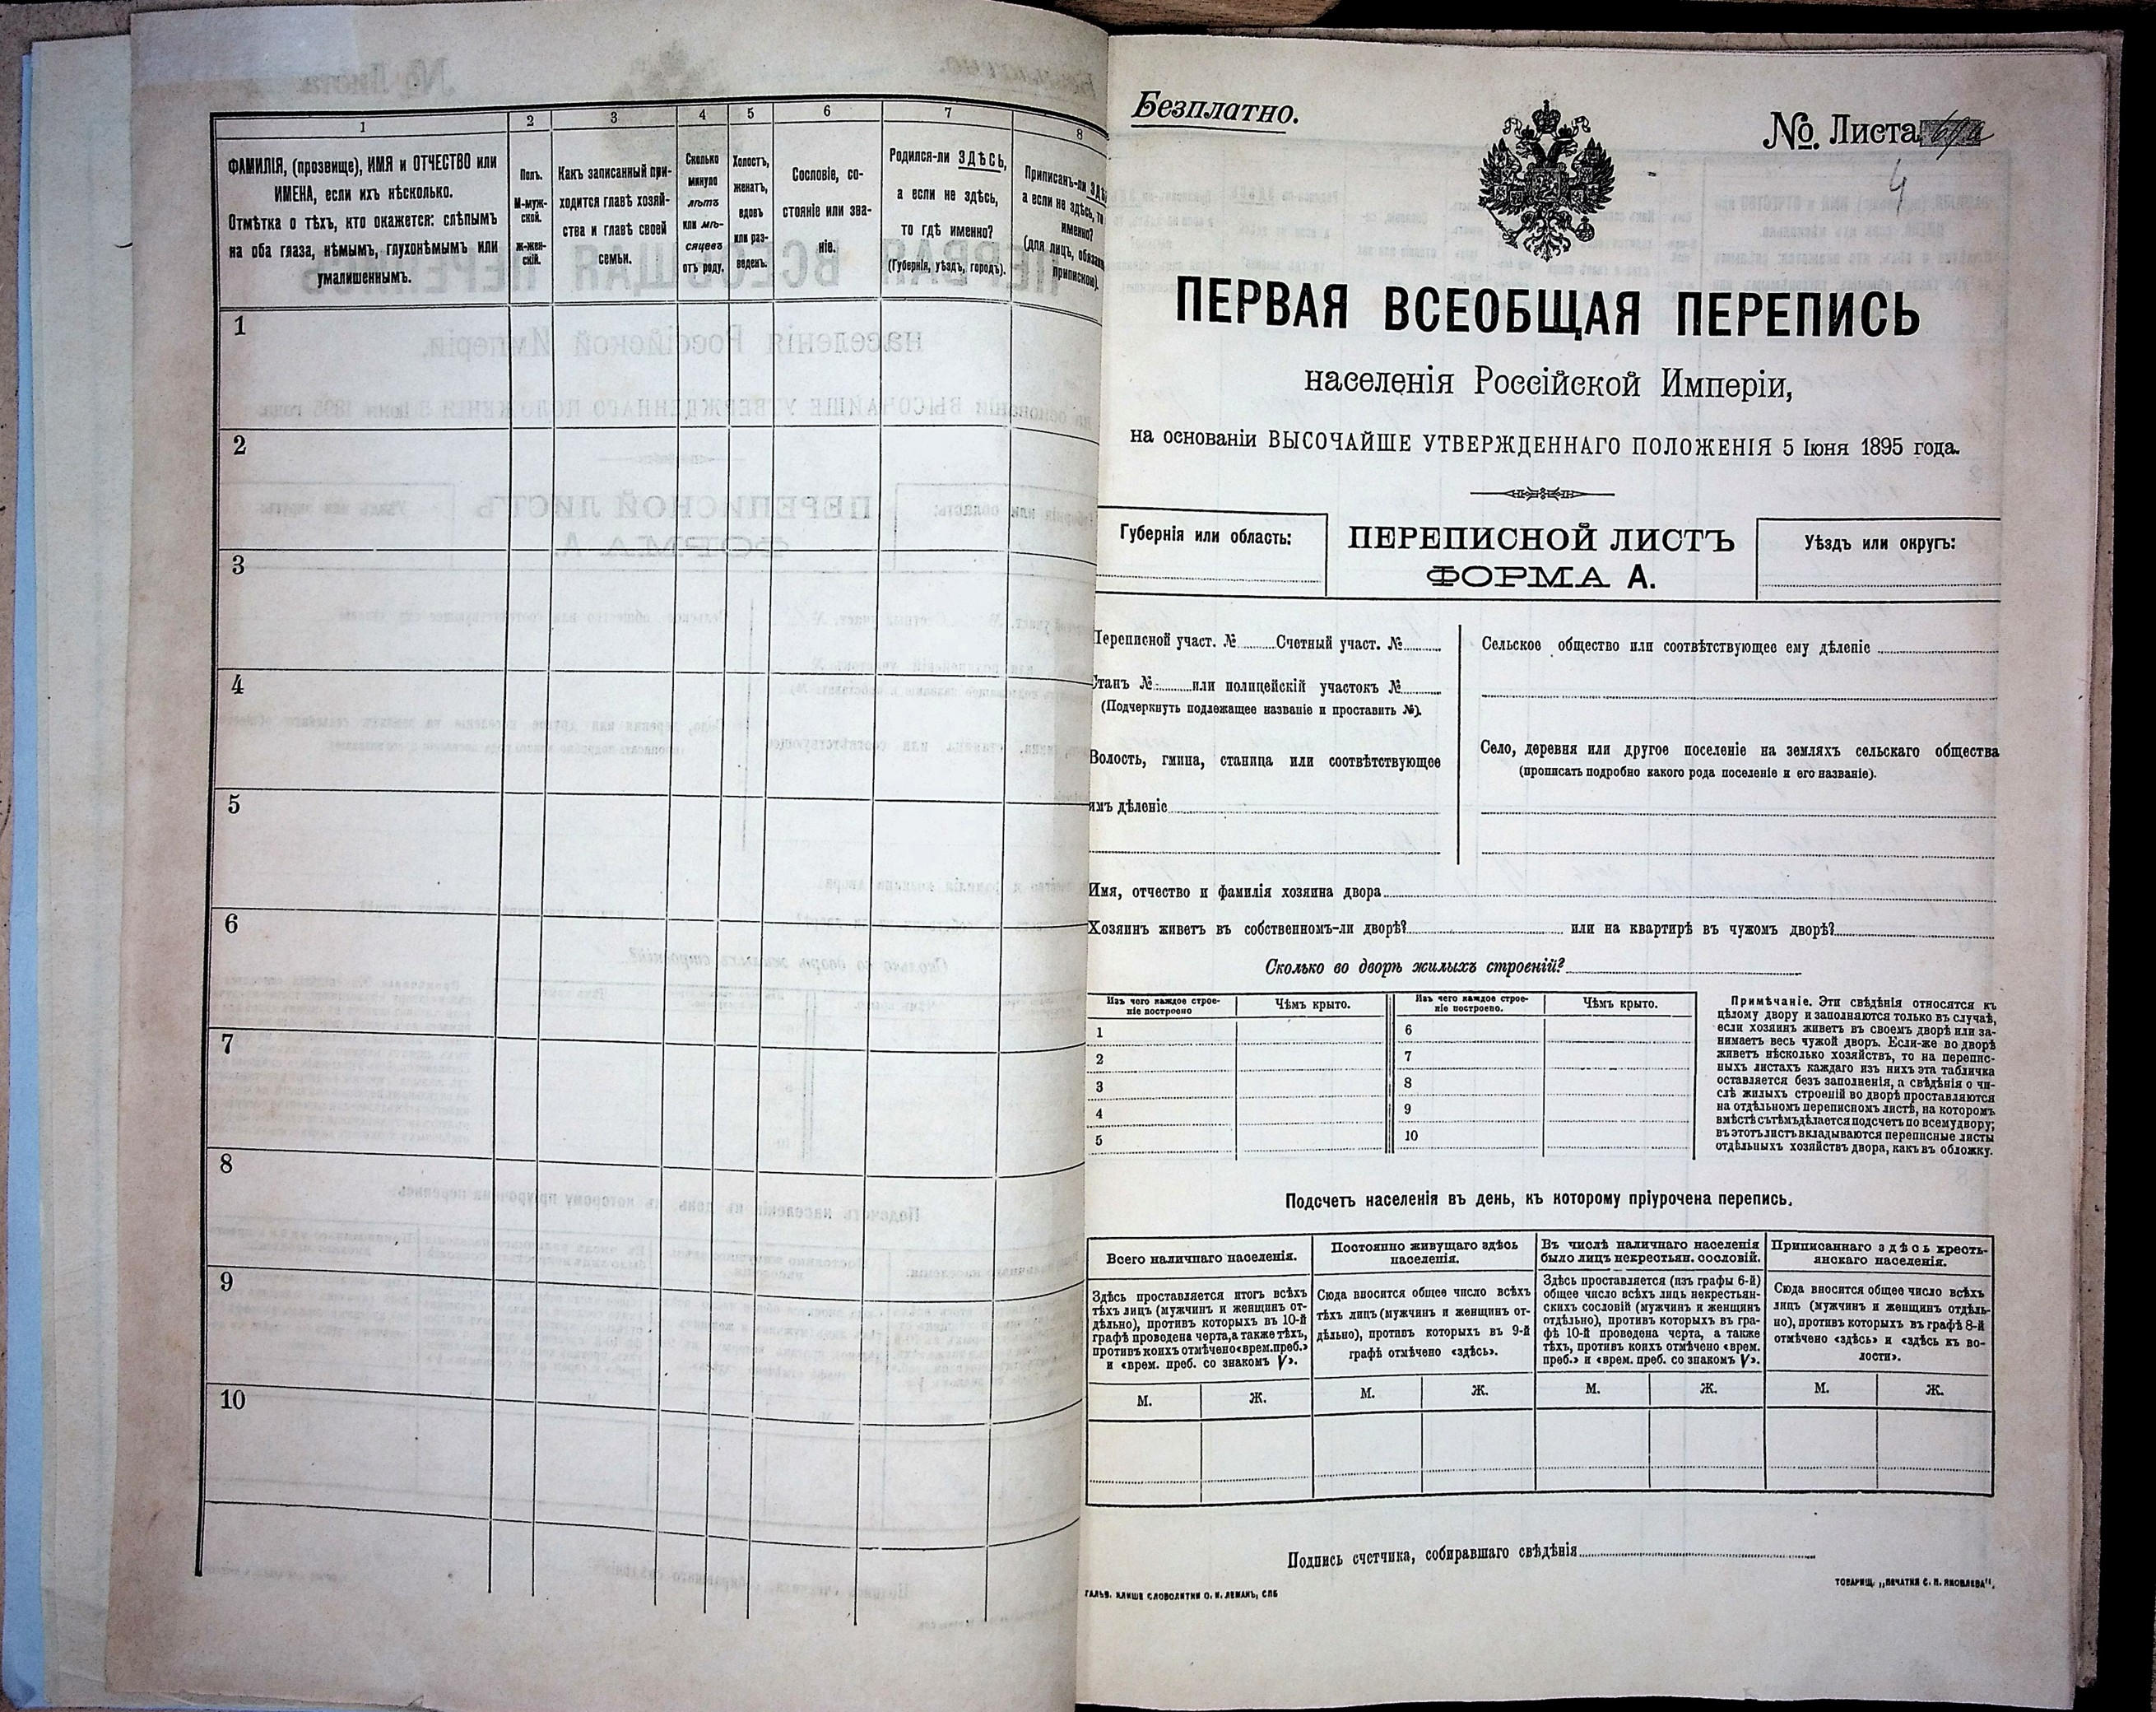 1 2 3 4 5 6 7 8
ФАМИЛІЯ, (прозвище), ИМЯ и ОТЧЕСТВО или
ИМЕНА, если ихъ нѣсколько.
Отмѣтка о тѣхъ, кто окажется: слѣпымъ
на оба глаза, нѣмымъ, глухонѣмымъ или
умалишеннымъ.
Полъ.
М-муж-
ской.
ж-жен-
скій.
Какъ записанный при-
ходится главѣ хозяй-
ства и главѣ своей
семьи.
Сколько
минуло
лѣтъ
или мѣ-
сяцевъ
отъ роду.
Холостъ,
женатъ,
вдовъ
или раз-
веденъ.
Сословіе, со-
стояніе или зва-
ніе.
Родился-ли ЗДѢСЬ,
а если не здѣсь,
то гдѣ именно?
(Губернія, уѣздъ, городъ).
Приписанъ-ли
а если не здѣсь, то
именно?
(для лицъ,
припискою).
1
2
3
4
5
6
7
8
9
10
Безплатно.
№ Листа
4
ПЕРВАЯ ВСЕОБЩАЯ ПЕРЕПИСЬ
населенія Россійской Имперіи,
на основаніи ВЫСОЧАЙШЕ УТВЕРЖДЕННАГО ПОЛОЖЕНІЯ 5 Іюня 1895 года.
Губернія или область:
ПЕРЕПИСНОЙ ЛИСТЪ
ФОРМА А.
Уѣздъ или округъ:
Переписной участ. № Счетный участ. №
Станъ № или полицейскій участокъ №
(Подчеркнуть подлежащее названіе и проставить №).
Волость, гмина, станица или соотвѣтствующее
имъ дѣленіе
Сельское общество или соотвѣтствующее ему дѣленіе
Село, деревня или другое поселеніе на земляхъ сельскаго общества
(прописать подробно какого рода поселеніе и его названіе).
Имя, отчество и фамилія хозяина двора
Хозяинъ живетъ въ собственномъ-ли дворѣ? или на квартирѣ въ чужомъ дворѣ?
Сколько во дворѣ жилыхъ строеній?
Изъ чего каждое строе-
ніе построено
Чѣмъ крыто.
Изъ чего каждое строе-
ніе построено.
Чѣмъ крыто.
1 6
2 7
3 8
4 9
5 10
Примѣчаніе. Эти свѣдѣнія относятся къ
цѣлому двору и заполняются только въ случаѣ,
если хозяинъ живетъ въ своемъ дворѣ или за-
нимаетъ весь чужой дворъ. Если-же во дворѣ
живетъ нѣсколько хозяйствъ, то на перепис-
ныхъ листахъ каждаго изъ нихъ эта табличка
оставляется безъ заполненія, а свѣдѣнія о чи-
слѣ жилыхъ строеній во дворѣ проставляются
на отдѣльномъ переписномъ листѣ, на которомъ
вмѣстѣ съ тѣмъ дѣлается подсчетъ по всему двору;
въ этотъ листъ вкладываются переписные листы
отдѣльныхъ хозяйствъ двора, какъ въ обложку.
Подсчетъ населенія въ день, къ которому пріурочена перепись.
Всего наличнаго населенія.
Здѣсь проставляется итогъ всѣхъ
тѣхъ лицъ (мужчинъ и женщинъ от-
дѣльно), противъ которыхъ въ 10-й
графѣ проведена черта, а также тѣхъ,
противъ коихъ отмѣчено «врем. преб.»
и «врем. преб. со знакомъ V».
Постоянно живущаго здѣсь
населенія.
Сюда вносится общее число всѣхъ
тѣхъ лицъ (мужчинъ и женщинъ от-
дѣльно), противъ которыхъ въ 9-й
графѣ отмѣчено «здѣсь».
Въ числѣ наличнаго населенія
было лицъ некрестьян. сословій.
Здѣсь проставляется (изъ графы 6-й)
общее число всѣхъ лицъ некрестьян-
скихъ сословій (мужчинъ и женщинъ
отдѣльно), противъ которыхъ въ гра-
фѣ 10-й проведена черта, а также
тѣхъ, противъ коихъ отмѣчено «врем.
преб.» и «врем. преб. со знакомъ V».
Приписаннаго здѣсь кресть-
янскаго населенія.
Сюда вносится общее число всѣхъ
лицъ (мужчинъ и женщинъ отдѣль-
но), противъ которыхъ въ графѣ 8-й
отмѣчено «здѣсь» и «здѣсь къ во-
лости».
М. Ж. М. Ж. М. Ж. М. Ж.
Подпись счетчика, собиравшаго свѣдѣнія
ГАЛЬВ. КЛИШЕ СЛОВОЛИТНИ О. И. ЛЕМАНЪ, СПБ
ТОВАРИЩ. „ПЕЧАТНЯ С. П. ЯКОВЛЕВА".